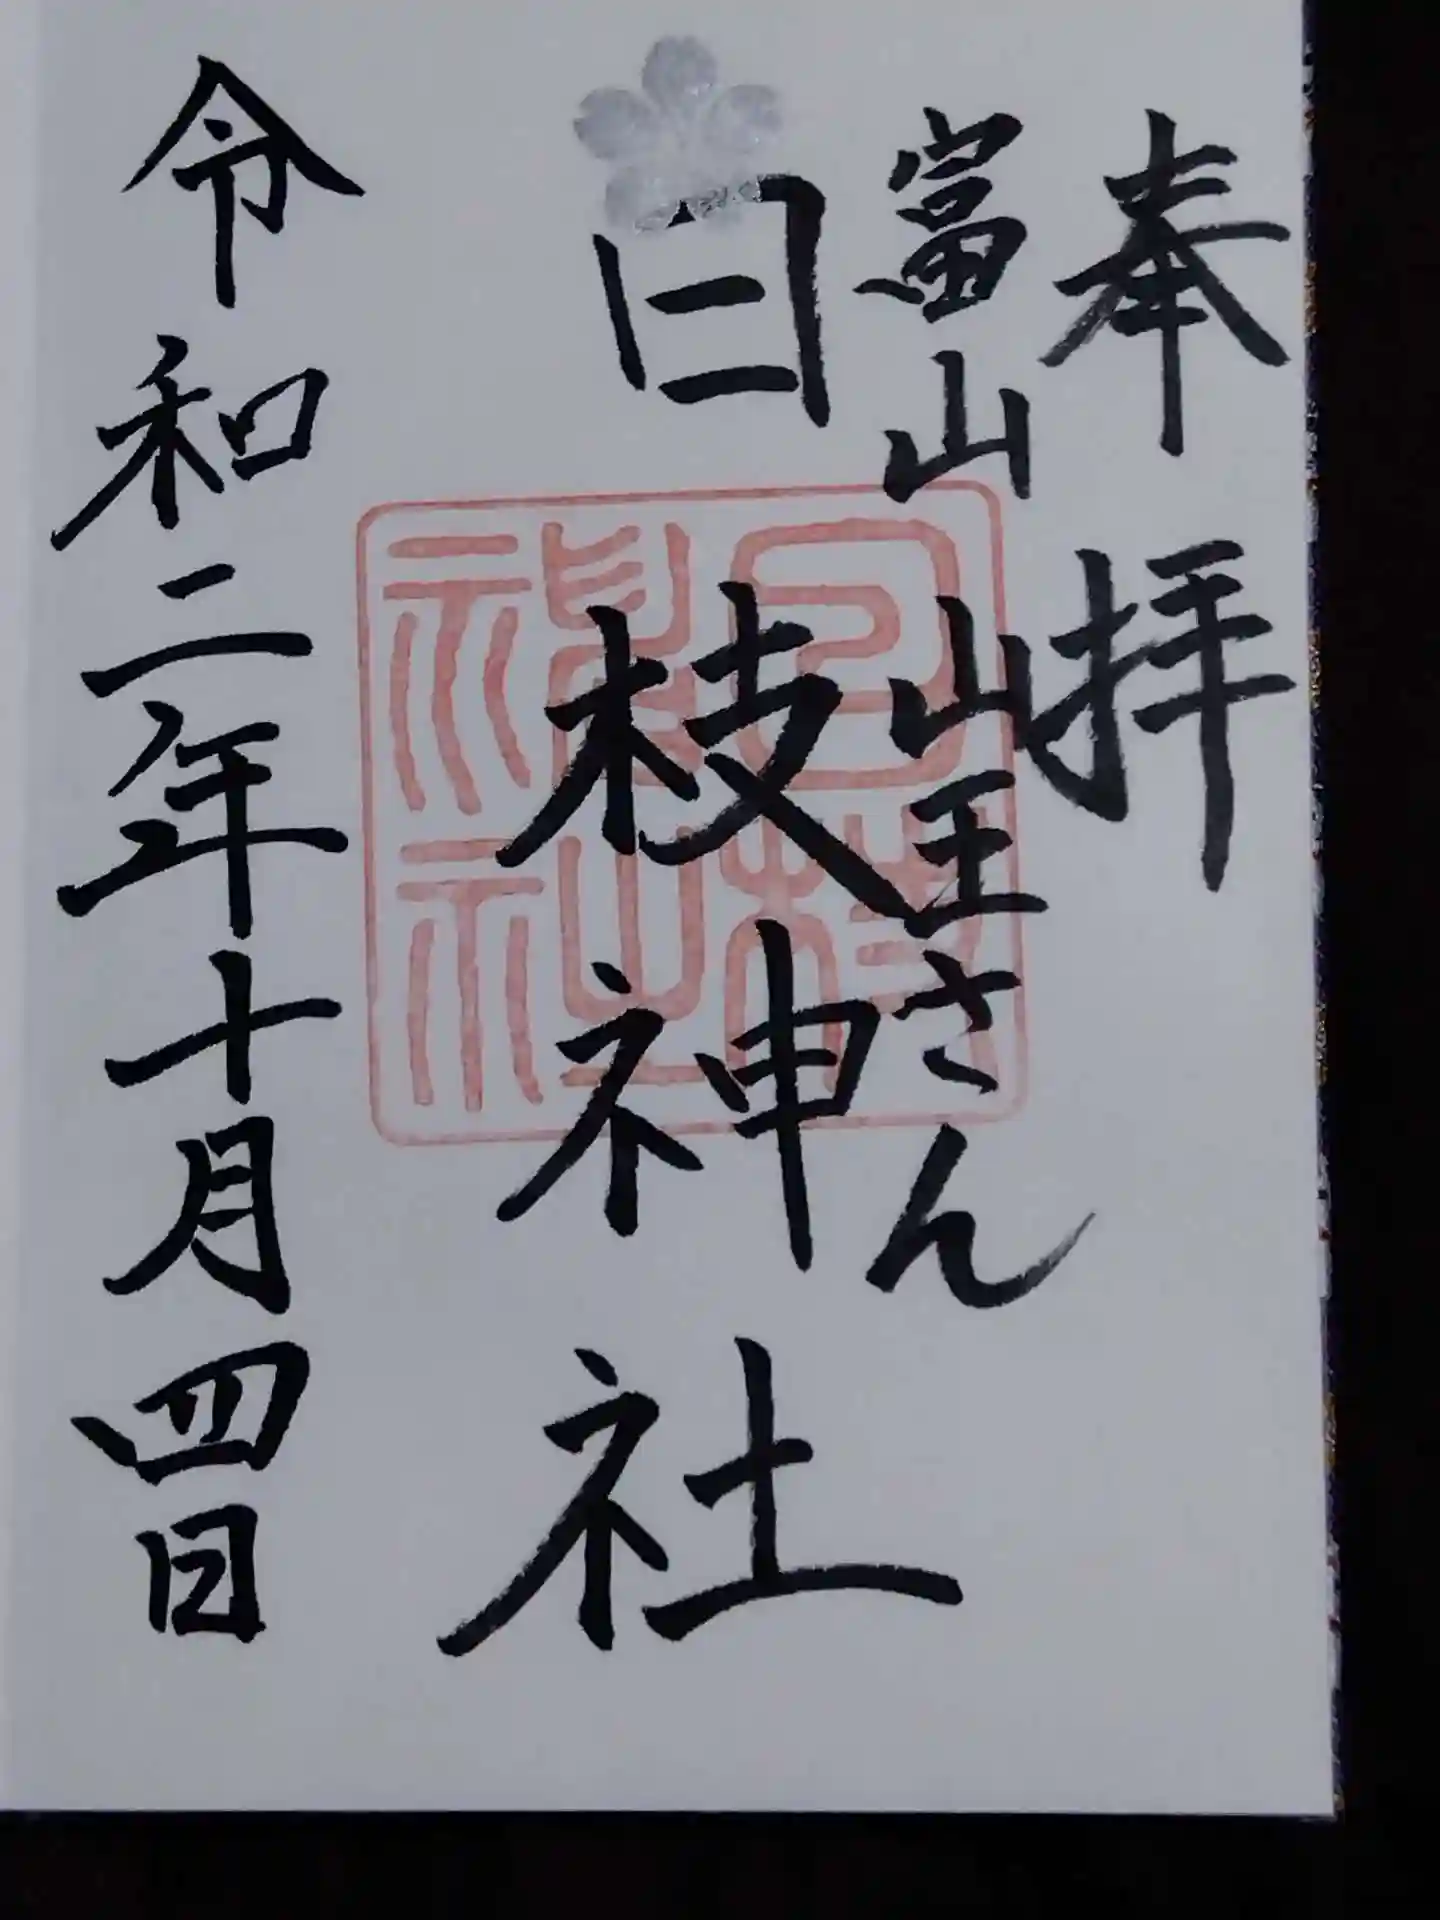 奉拝
富山山王さん
日枝神社
日枝神社
令和二年十月四日